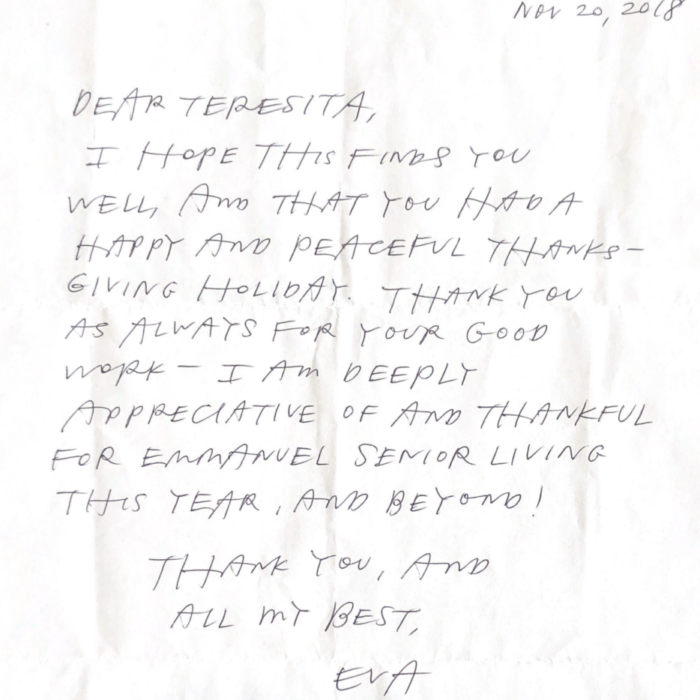 NOV 20, 2018
DEAR TERESITA,
I HOPE THIS FINDS YOU
WELL, AND THAT YOU HAD A
HAPPY AND PEACEFUL THANKS-
GIVING HOLIDAY. THANK YOU
AS ALWAYS FOR YOUR GOOD
WORK - I AM DEEPLY
APPRECIATIVE OF AND THANKFUL
FOR EMMANUEL SENIOR LIVING
THIS YEAR, AND BEYOND!
THANK YOU, AND
ALL MY BEST,
EVA